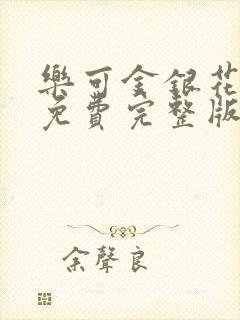 樂可金銀花
免費完整版
余聲良